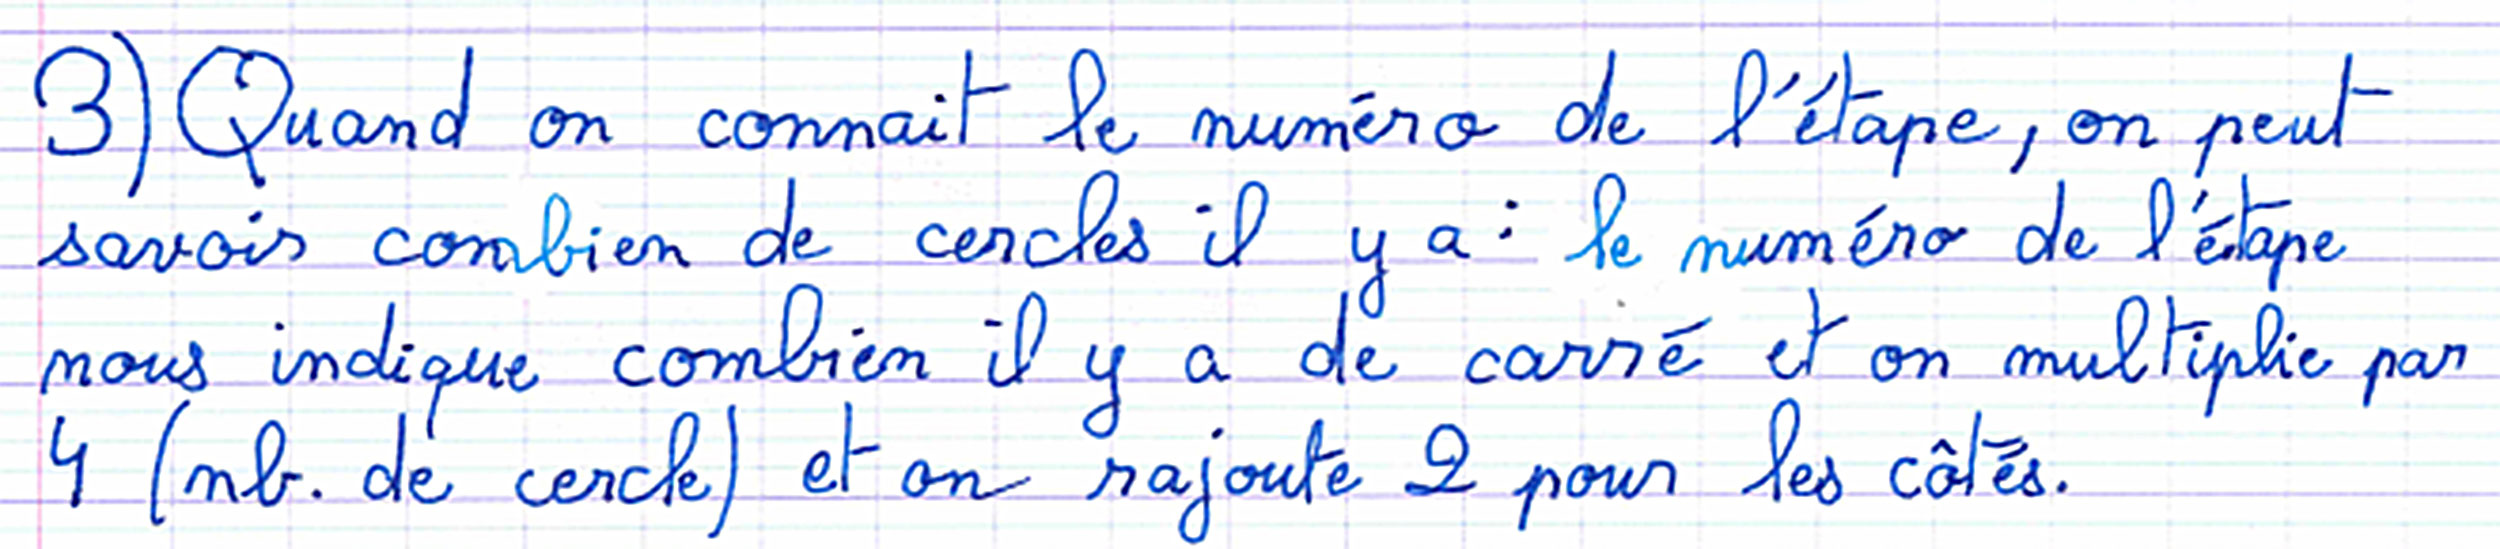 3) Quand on connait le numéro de l'étape, on peut
savoir combien de cercles il y a : le numéro de l'étape
nous indique combien il y a de carré et on multiplie par
4 (nb. de cercle) et on rajoute 2 pour les côtés.